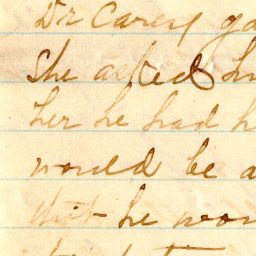 Dr Carey
She asked
her he had
would be a
that he